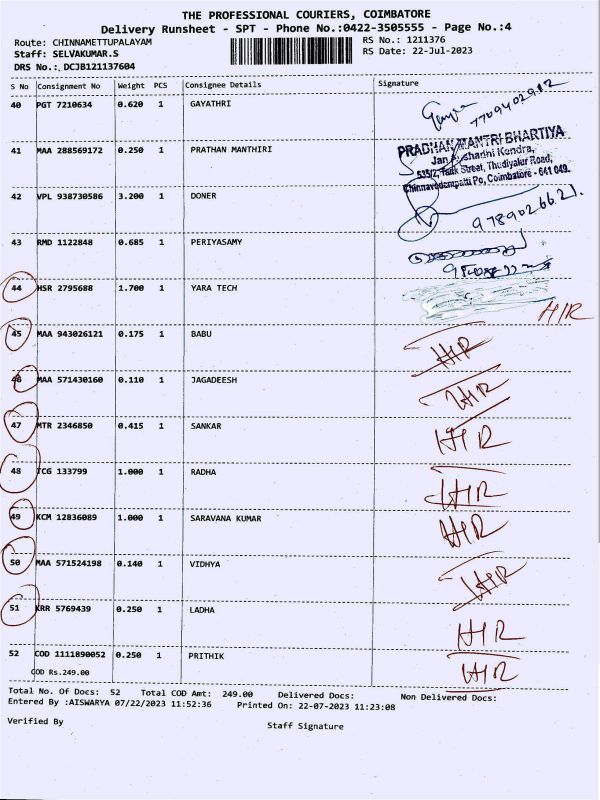 THE PROFESSIONAL COURIERS, COIMBATORE
Delivery Runsheet - SPT - Phone No.:0422-3505555 - Page No.:4
Route: CHINNAMETTUPALAYAM RS No.: 1211376
Staff: SELVAKUMAR.S RS Date: 22-Jul-2023
DRS No.: DCJB121137604
S No Consignment No Weight PCS Consignee Details Signature
40 PGT 7210634 0.620 1 GAYATHRI 7709402912
41 MAA 288569172 0.250 1 PRATHAN MANTHIRI
PRADHAN MANTRI BHARTIYA
Jan Kendra,
535/2, Tank Street, Thudiyalur Road,
Chinnavedampatti Po, Coimbatore - 641 049.
42 VPL 938730586 3.200 1 DONER 9789026621.
43 RMD 1122848 0.685 1 PERIYASAMY
44 HSR 2795688 1.700 1 YARA TECH HIR
45 MAA 943026121 0.175 1 BABU HIR
46 MAA 571430160 0.110 1 JAGADEESH HIR
47 MTR 2346850 0.415 1 SANKAR HIR
48 TCG 133799 1.000 1 RADHA HIR
49 KCM 12836089 1.000 1 SARAVANA KUMAR HIR
50 MAA 571524198 0.140 1 VIDHYA HIR
51 KRR 5769439 0.250 1 LADHA HIR
52 COD 1111890052 0.250 1 PRITHIK HIR
COD Rs.249.00
Total No. Of Docs: 52 Total COD Amt: 249.00 Delivered Docs: Non Delivered Docs:
Entered By :AISWARYA 07/22/2023 11:52:36 Printed On: 22-07-2023 11:23:08
Verified By Staff Signature